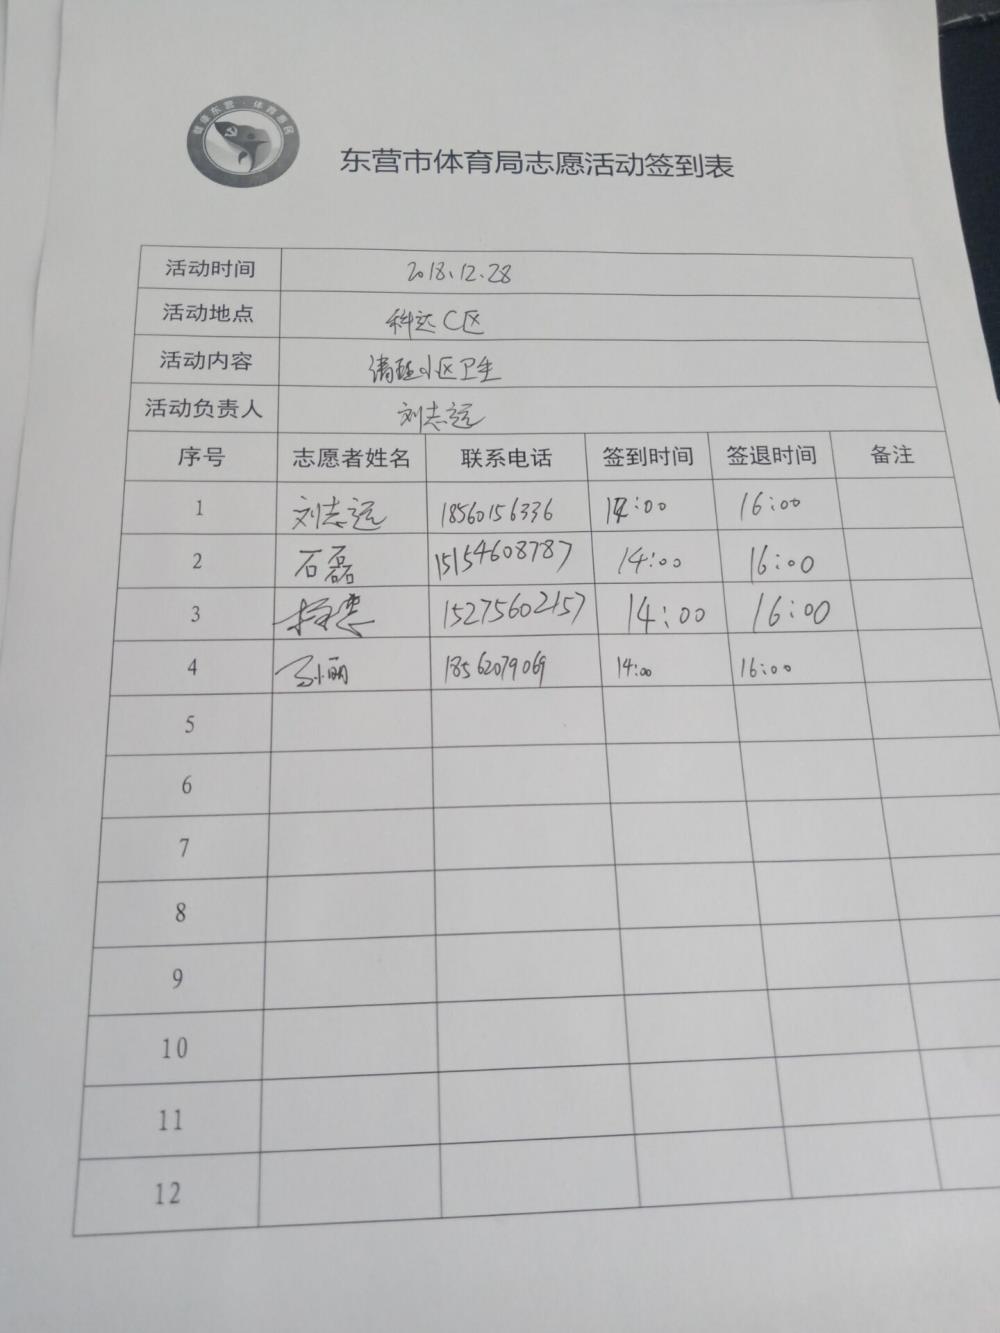 健康东营·体育惠民
东营市体育局志愿活动签到表
活动时间 2018.12.28
活动地点 科达C区
活动内容 清理小区卫生
活动负责人 刘志远
序号 志愿者姓名 联系电话 签到时间 签退时间 备注
1 刘志远 18560156336 14:00 16:00
2 石磊 15154608787 14:00 16:00
3 15275602157 14:00 16:00
4 孙丽 18562079069 14:00 16:00
5
6
7
8
9
10
11
12